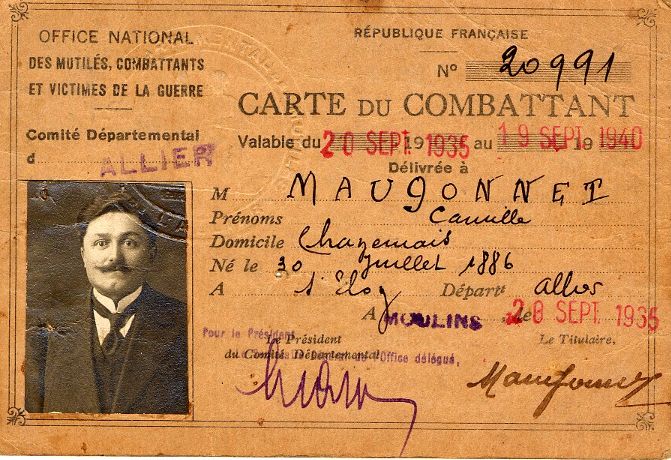 OFFICE NATIONAL
DES MUTILÉS, COMBATTANTS
ET VICTIMES DE LA GUERRE
Comité Départemental
d ALLIER
RÉPUBLIQUE FRANÇAISE
N° 20991
CARTE DU COMBATTANT
Valable du 20 SEPT. 1935 au 19 SEPT. 1940
Délivrée à
M MAUGONNET
Prénoms Camille
Domicile Chazemais
Né le 30 Juillet 1886
A St Eloy Départt Allier
A MOULINS, le 20 SEPT. 1935
Pour le Président
Le Président
du Comité Départemental,
l'Office délégué,
Le Titulaire,
Maugonnet